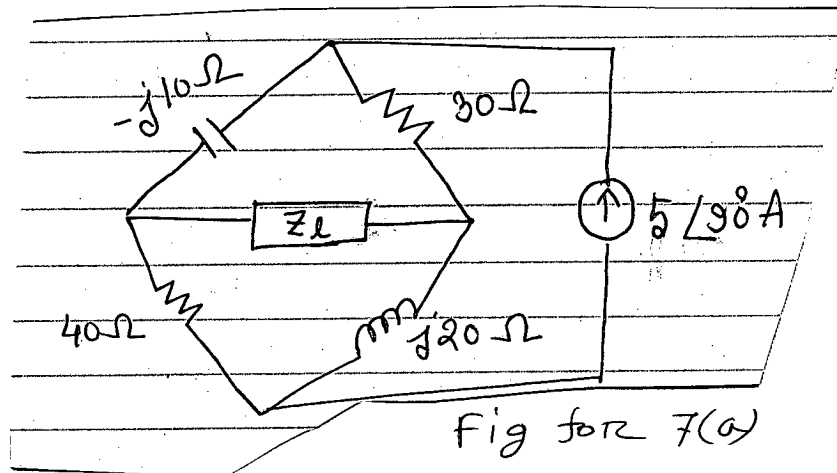 -j10Ω
30Ω
Zl
5∠90° A
40Ω
j20 Ω
Fig for 7(a)